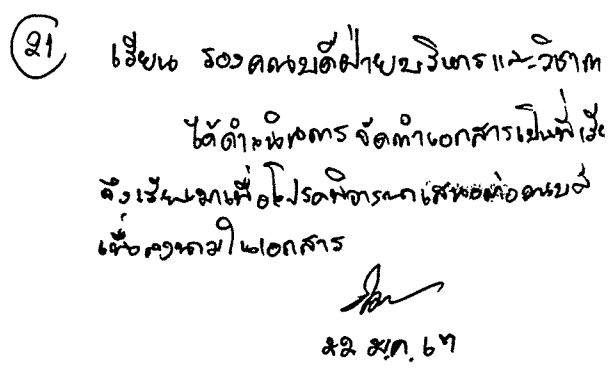 21
เรียน รองคณบดีฝ่ายบริหารและวิชาการ
ได้ดำเนินการ จัดทำเอกสารเป็นที่เรีย
จึงเรียนมาเพื่อโปรดพิจารณาเสนอต่อคณบดี
เพื่อลงนามในเอกสาร
22 ม.ค. 67